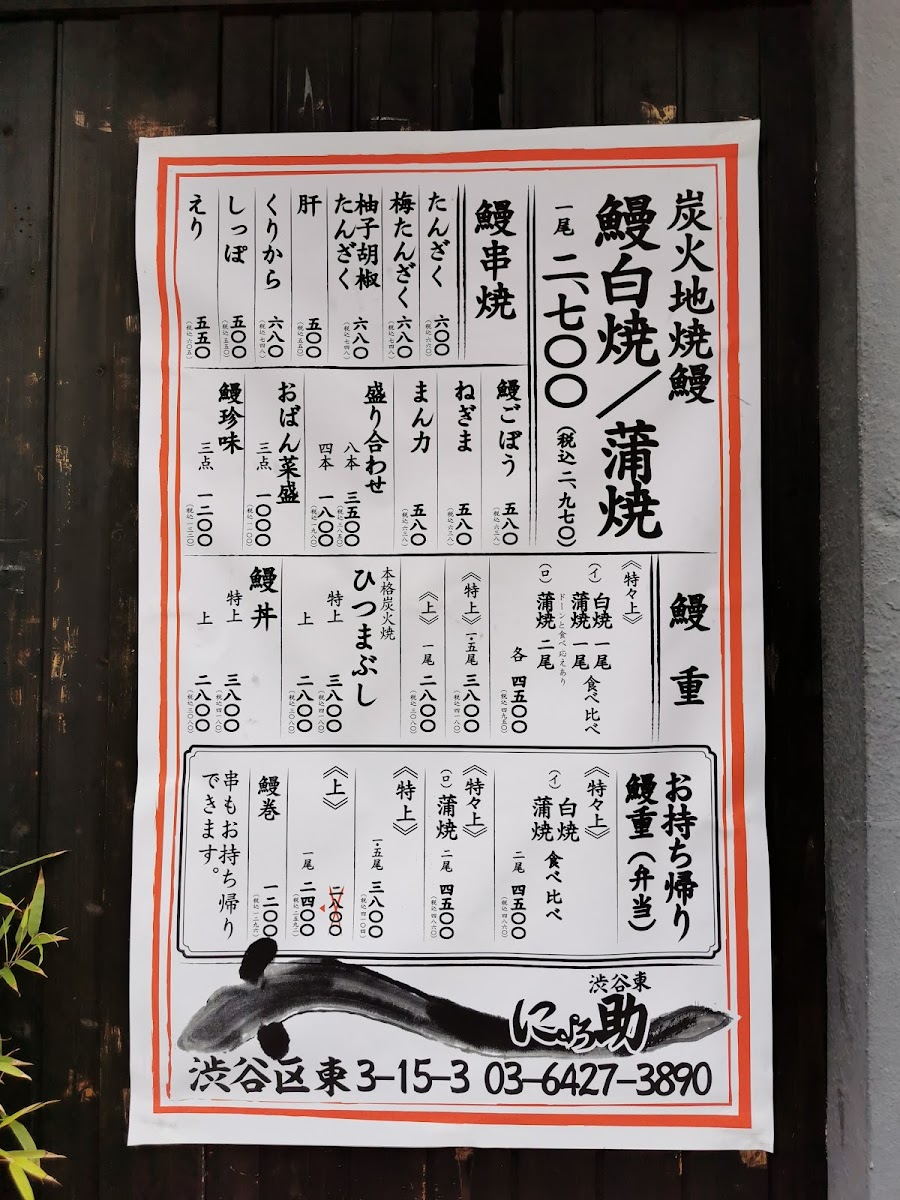 炭火地焼鰻
鰻白焼／蒲焼
一尾 二、七〇〇（税込二、九七〇）
鰻串焼
たんざく 六〇〇（税込六六〇）
梅たんざく 六八〇（税込七四八）
柚子胡椒
たんざく 六八〇（税込七四八）
肝 五〇〇（税込五五〇）
くりから 六八〇（税込七四八）
しっぽ 五〇〇（税込五五〇）
えり 五五〇（税込六〇五）
鰻ごぼう 五八〇（税込六三八）
ねぎま 五八〇（税込六三八）
まん力 五八〇（税込六三八）
盛り合わせ
八本 三五〇〇（税込三八五〇）
四本 一八〇〇（税込一九八〇）
おばん菜盛
三点 一〇〇〇（税込一一〇〇）
鰻珍味
三点 一二〇〇（税込一三二〇）
鰻重
《特々上》
（イ）白焼 一尾
蒲焼 一尾 食べ比べ
ドーンと食べ応えあり
（ロ）蒲焼 二尾
各 四五〇〇（税込四九五〇）
《特上》 一・五尾 三八〇〇（税込四一八〇）
《上》 一尾 二八〇〇（税込三〇八〇）
本格炭火焼
ひつまぶし
特上 三八〇〇（税込四一八〇）
上 二八〇〇（税込三〇八〇）
鰻丼
特上 三八〇〇（税込四一八〇）
上 二八〇〇（税込三〇八〇）
お持ち帰り
鰻重（弁当）
《特々上》
（イ）白焼
蒲焼 食べ比べ
二尾 四五〇〇（税込四八六〇）
《特々上》
（ロ）蒲焼 二尾 四五〇〇（税込四八六〇）
《特上》
一・五尾 三八〇〇（税込四一〇四）
《上》
二八〇〇
一尾 二四〇〇（税込二五九二）
鰻巻 一二〇〇（税込一二九六）
串もお持ち帰り
できます。
渋谷東
にょろ助
渋谷区東3-15-3 03-6427-3890